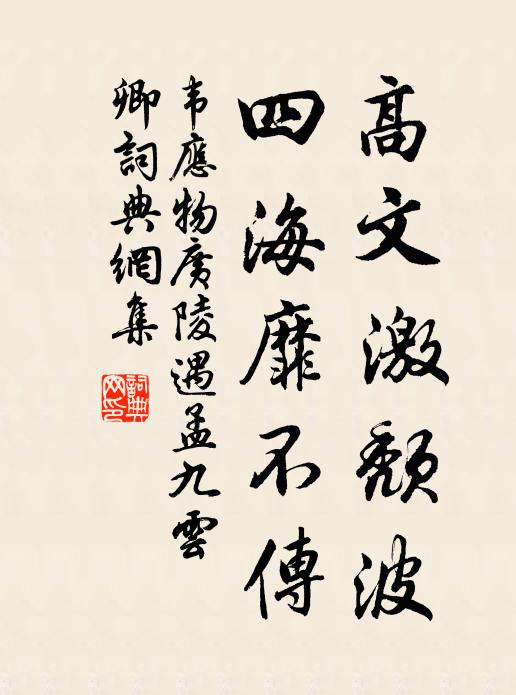 高文激頹波
四海靡不傳
韦應物廣陵遇孟九雲
卿詞典網集
詞典網印